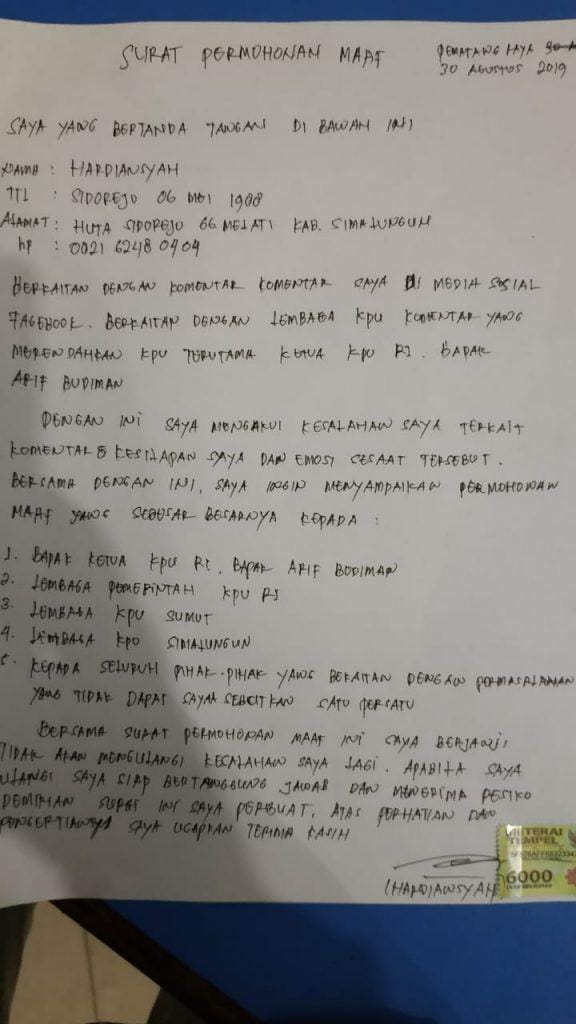 SURAT PERMOHONAN MAAF
PEMATANG RAYA 30
30 AGUSTUS 2019
SAYA YANG BERTANDA TANGAN DI BAWAH INI
NAMA : HARDIANSYAH
TTL : SIDOREJO 06 MEI 1988
ALAMAT : HUTA SIDOREJO GG MELATI KAB. SIMALUNGUN
hp : 0821 6248 0404
BERKAITAN DENGAN KOMENTAR KOMENTAR SAYA DI MEDIA SOSIAL
FAGEBOOK. BERKAITAN DENGAN LEMBAGA KPU KOMENTAR YANG
MERENDAHKAN KPU TERUTAMA KETUA KPU RI. BAPAK
ARIF BUDIMAN
DENGAN INI SAYA MENGAKUI KESALAHAN SAYA TERKAIT
KOMENTAR & KESILAPAN SAYA DAN EMOSI SESAAT TERSEBUT.
BERSAMA DENGAN INI, SAYA INGIN MENYAMPAIKAN PERMOHONAN
MAAF YANG SEBESAR BESARNYA KEPADA :
1. BAPAK KETUA KPU RI. BAPAK ARIF BUDIMAN
2. LEMBAGA PEMERINTAH KPU RI
3. LEMBAGA KPU SUMUT
4. LEMBAGA KPU SIMALUNGUN
5. KEPADA SELURUH PIHAK-PIHAK YANG BEKAITAN DENGAN PERMASALAHAN
YANG TIDAK DAPAT SAYA SEBUTKAN SATU PERSATU
BERSAMA SURAT PERMOHONAN MAAF INI SAYA BERJANJI
TIDAK AKAN MENGULANGI KESALAHAN SAYA LAGI. APABILA SAYA
ULANGI SAYA SIAP BERTANGGUNG JAWAB DAN MENERIMA RESIKO
DEMIKIAN SURAT INI SAYA PERBUAT, ATAS PERHATIAN DAN
PENGERTIANNYA SAYA UCAPKAN TERIMA KASIH
METERAI
TEMPEL
6000
(HARDIANSYAH)